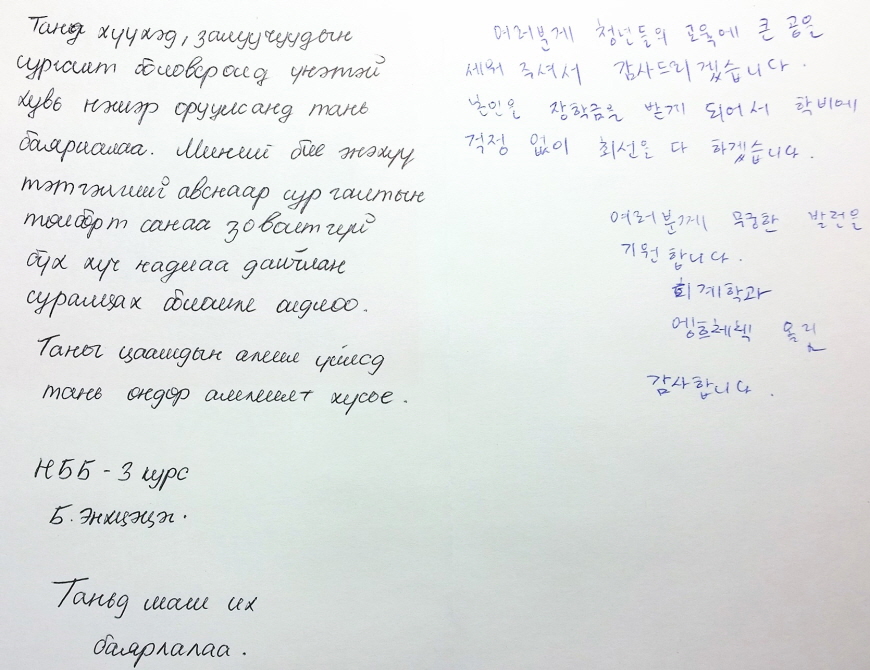 Танд хүүхэд, залуучуудын
сургалт боловсролд үнэтэй
хувь нэмэр оруулсанд тань
баярлалаа. Миний бие энэхүү
тэтгэлгийг авснаар сургалтын
төлбөрт санаа зоволтгүй
бүх хүч надлаа дайчлан
суралцах болошлө
Таны цаашдын ажил үйлсд
тань өндөр амжилт хүсье.
НББ - 3 курс
Б. Энхцэцэг.
Таньд маш их
баярлалаа.
여러분께 청년들의 교육에 큰 공을
세워 주셔서 감사드리겠습니다.
본인은 장학금을 받게 되어서 학비에
걱정 없이 최선을 다 하겠습니다.
여러분께 무궁한 발전을
기원합니다.
회계학과
엥흐체첵 올림
감사합니다.